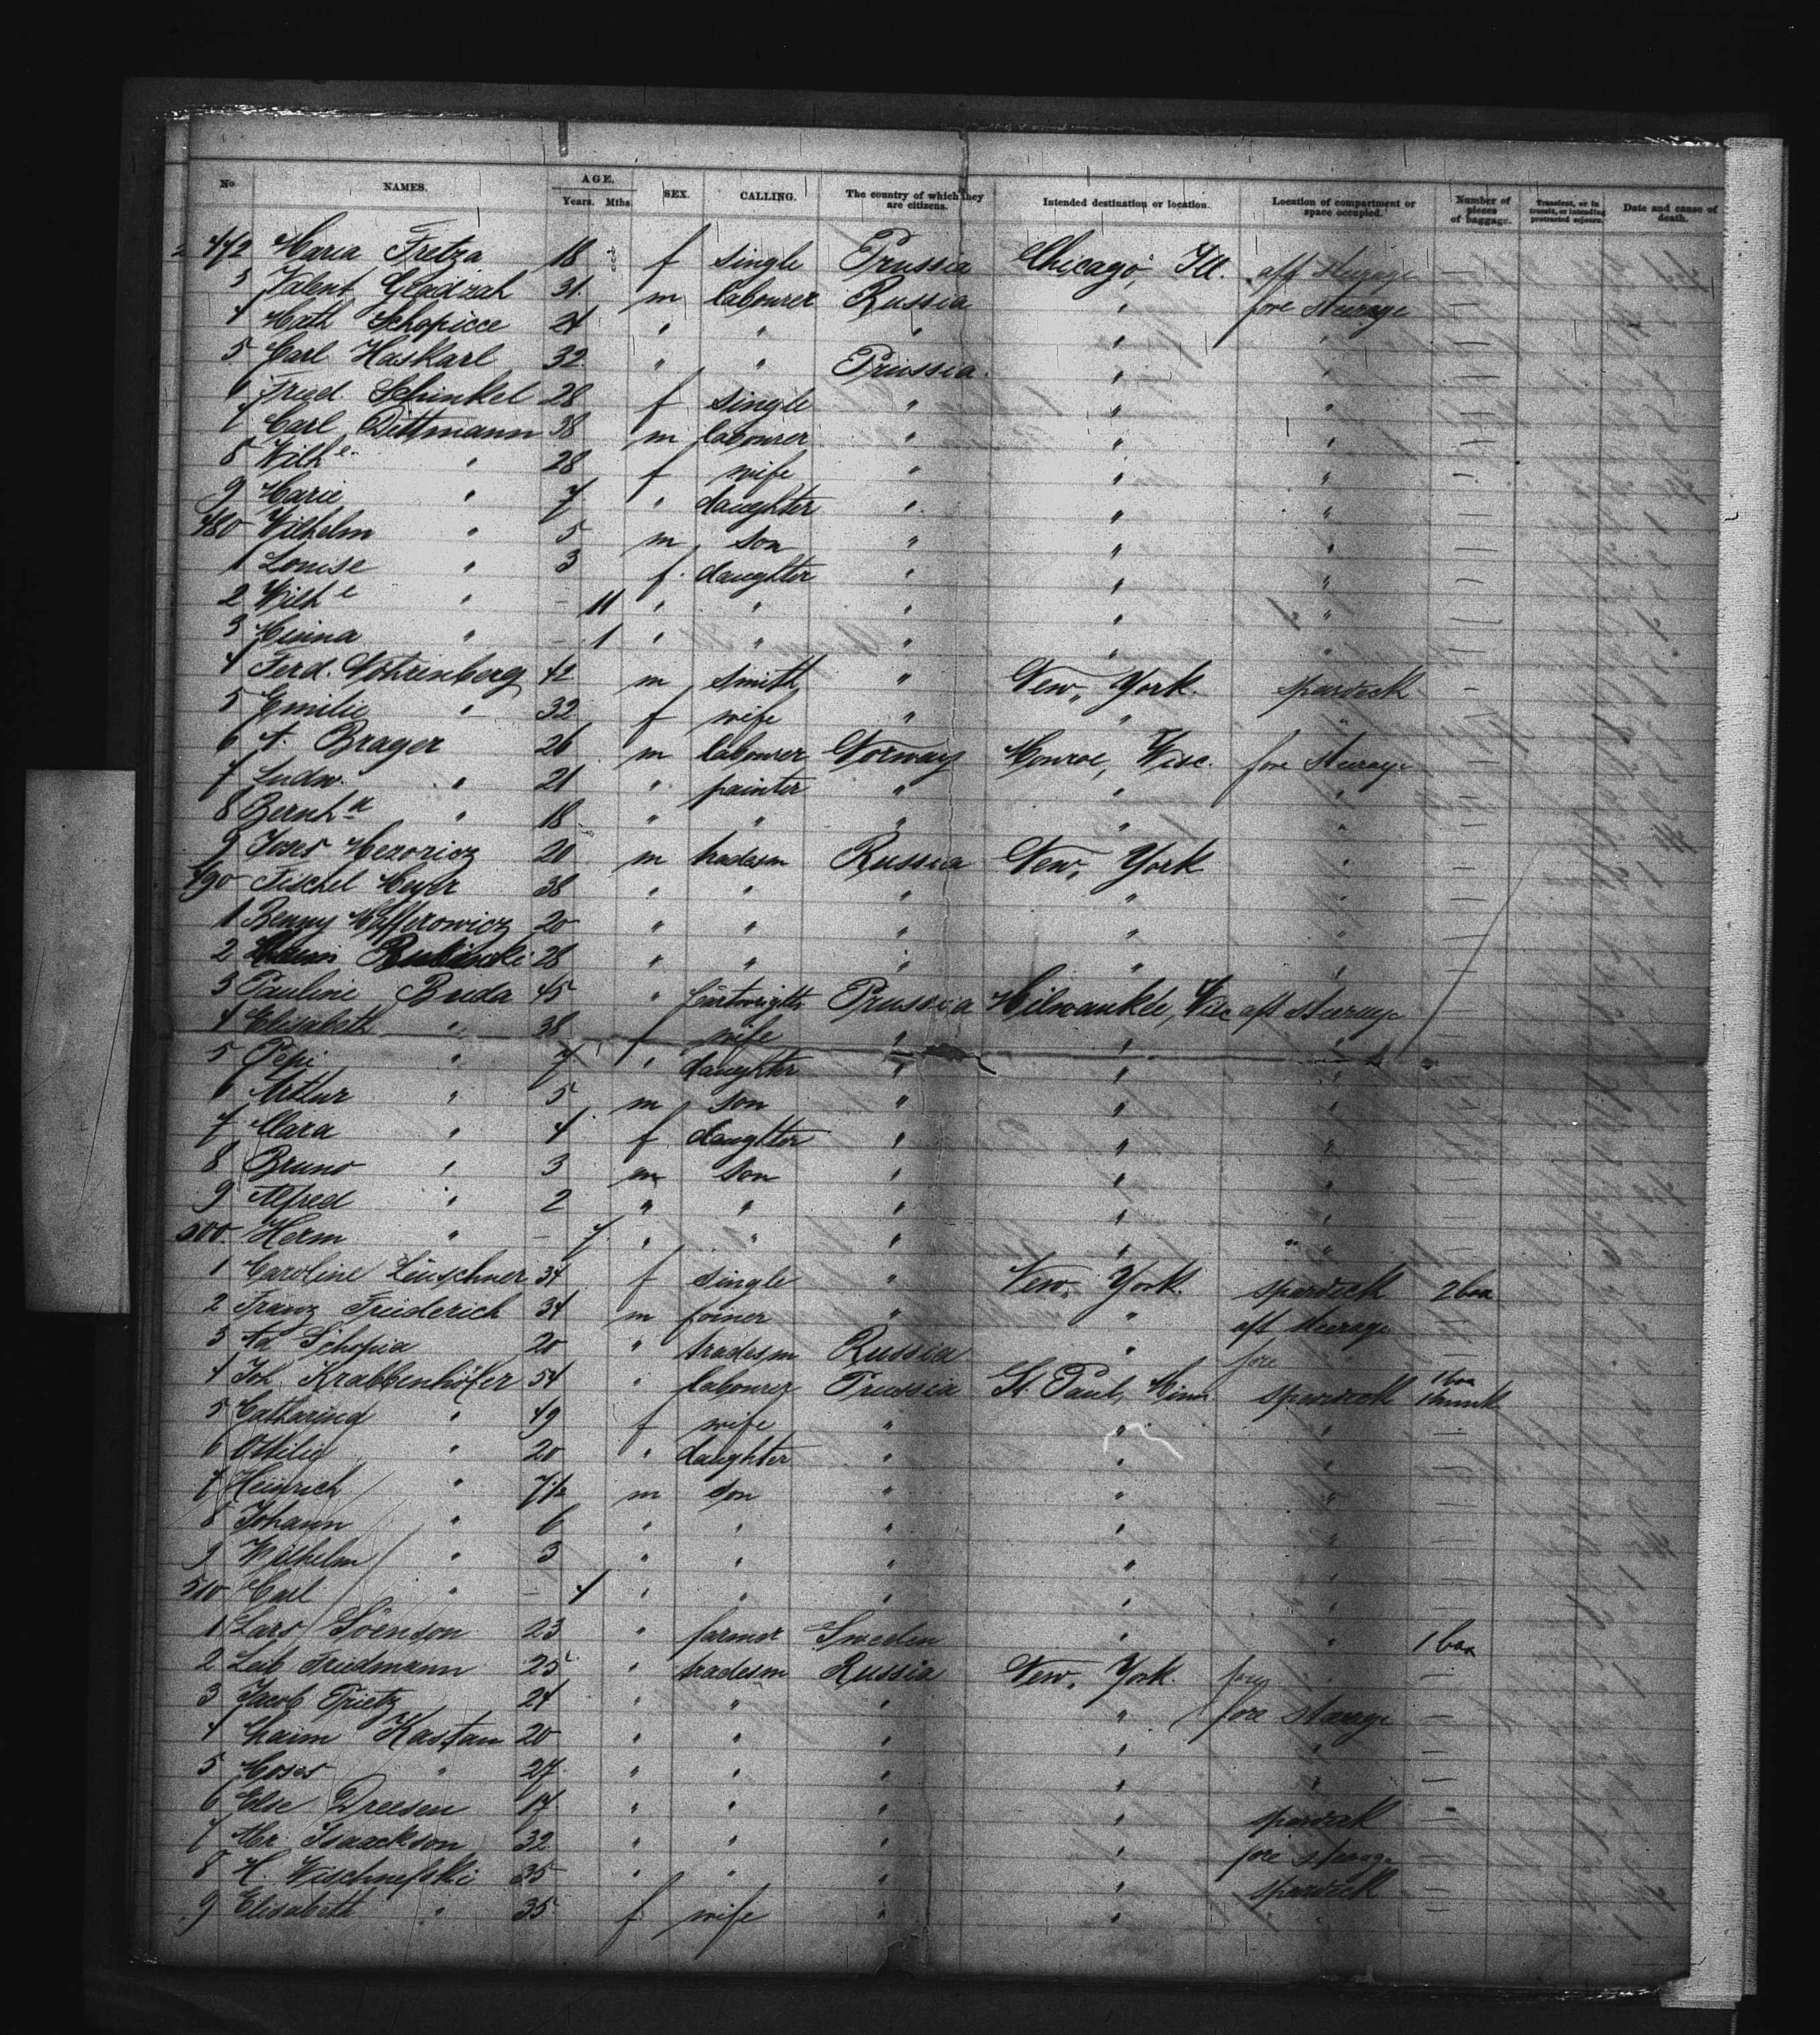 No NAMES. AGE. Years. Mths. SEX. CALLING. The country of which they are citizens. Intended destination or location. Location of compartment or space occupied. Number of pieces of baggage. Transient, or in transit, or intending protracted sojourn. Date and cause of death.
472 Maria Fretza 18 f single Prussia Chicago, Ill. aft steerage —
3 Valent Gladzah 31 m labourer Russia " fore steerage —
4 Math Schopicce 24 " " " " " —
5 Carl Haskarl 32 " " Prussia " " —
6 Fried. Schinkel 28 f single " " " —
7 Carl Dittmann 38 m labourer " " " —
8 Wilhe " 28 f wife " " " —
9 Marie " 7 " daughter " " " —
480 Wilhelm " 5 m son " " " —
1 Louise " 3 f daughter " " " —
2 Wilhe " — 11 " " " " " —
3 Minna " — 1 " " " " " —
4 Ferd. Nohrenberg 42 m smith " New York. spardeck —
5 Emilie " 32 f wife " " " —
6 A. Brager 26 m labourer Norway Monroe, Wisc. fore steerage —
7 Ludw. " 21 " painter " " " —
8 Bernhd " 18 " " " " " —
9 Moses 20 m tradesm Russia New York " —
490 Fischel Meyer 38 " " " " " —
1 Benny 20 " " " " " —
2 28 " " " " " —
3 Pauline Breda 45 " Cartwright Prussia Milwaukee, Wisc aft steerage —
4 Elisabeth " 38 f wife " " " —
5 Pepi " 7 " daughter " " " —
6 Arthur " 5 m son " " " —
7 Clara " 4 f daughter " " " —
8 Bruno " 3 m son " " " —
9 Alfred " 2 " " " " " —
500 Herm " — 7 " " " " " —
1 Caroline Leuschner 34 f single " New York. spardeck 2 box
2 Franz Friederich 34 m joiner " " aft steerage —
3 Ad Schopia 20 " tradesm Russia " fore " —
4 Joh. Krabbenhöfer 54 " labourer Prussia St. Paul, Minn spardeck 1 box 1 trunk
5 Catharina " 49 f wife " " " —
6 Ottilie " 20 " daughter " " " —
7 Heinrich " 7½ m son " " " —
8 Johann " 6 " " " " " —
9 Wilhelm " 3 " " " " " —
510 Carl " — 4 " " " " " —
1 Lars Svenson 23 " farmer Sweden " " 1 box
2 Leib Friedmann 25 " tradesm Russia New York. fore " —
3 Jacob Prietz 24 " " " " fore steerage —
4 Chaim Kastan 20 " " " " " —
5 Moses " 27 " " " " " —
6 Else Dreesen 17 " " " " spardeck —
7 Abr. Isaackson 32 " " " " fore steerage —
8 H. Wischnefski 35 " " " " spardeck —
9 Elisabeth " 35 f wife " " " —